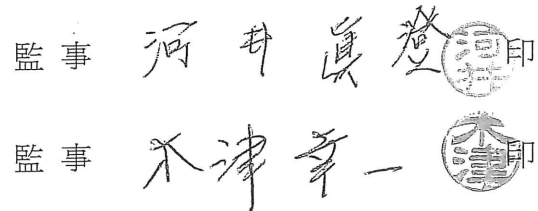 監事 河井眞澄 河井 印
監事 木津幸一 木津 印